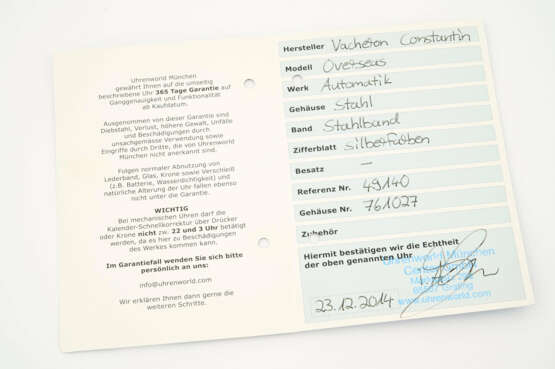 Uhrenworld München
gewährt Ihnen auf die umseitig
beschriebene Uhr 365 Tage Garantie auf
Ganggenauigkeit und Funktionalität
ab Kaufdatum.
Ausgenommen von dieser Garantie sind
Diebstahl, Verlust, höhere Gewalt, Unfälle
und Beschädigungen durch
unsachgemässe Verwendung sowie
Eingriffe durch Dritte, die von Uhrenworld
München nicht anerkannt sind.
Folgen normaler Abnutzung von
Lederband, Glas, Krone sowie Verschleiß
(z.B. Batterie, Wasserdichtigkeit) und
natürliche Alterung der Uhr fallen ebenso
nicht unter die Garantie.
WICHTIG
Bei mechanischen Uhren darf die
Kalender-Schnellkorrektur über Drücker
oder Krone nicht zw. 22 und 3 Uhr betätigt
werden, da es hier zu Beschädigungen
des Werkes kommen kann.
Im Garantiefall wenden Sie sich bitte
persönlich an uns:
info@uhrenworld.com
Wir erklären Ihnen dann gerne die
weiteren Schritte.
Hersteller Vacheron Constantin
Modell Overseas
Werk Automatik
Gehäuse Stahl
Band Stahlband
Zifferblatt silberfarben
Besatz —
Referenz Nr. 49140
Gehäuse Nr. 761027
Zubehör
Hiermit bestätigen wir die Echtheit
der oben genannten Uhr
Uhrenworld München
www.uhrenworld.com
23.12.2014